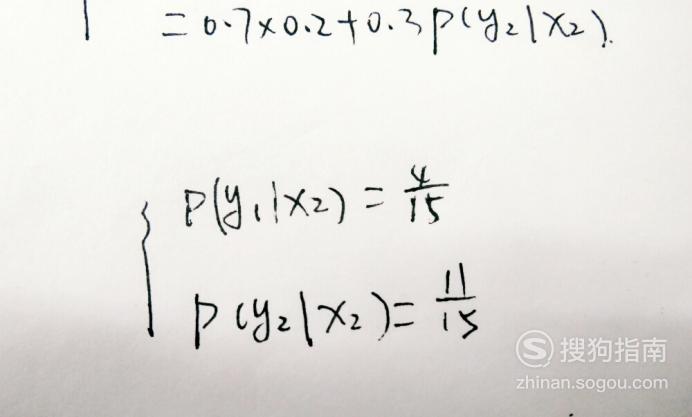 =0.7×0.2+0.3p(y₂|x₂).
p(y₁|x₂)=4/15
p(y₂|x₂)=11/15
S 搜狗指南
zhinan.sogou.com